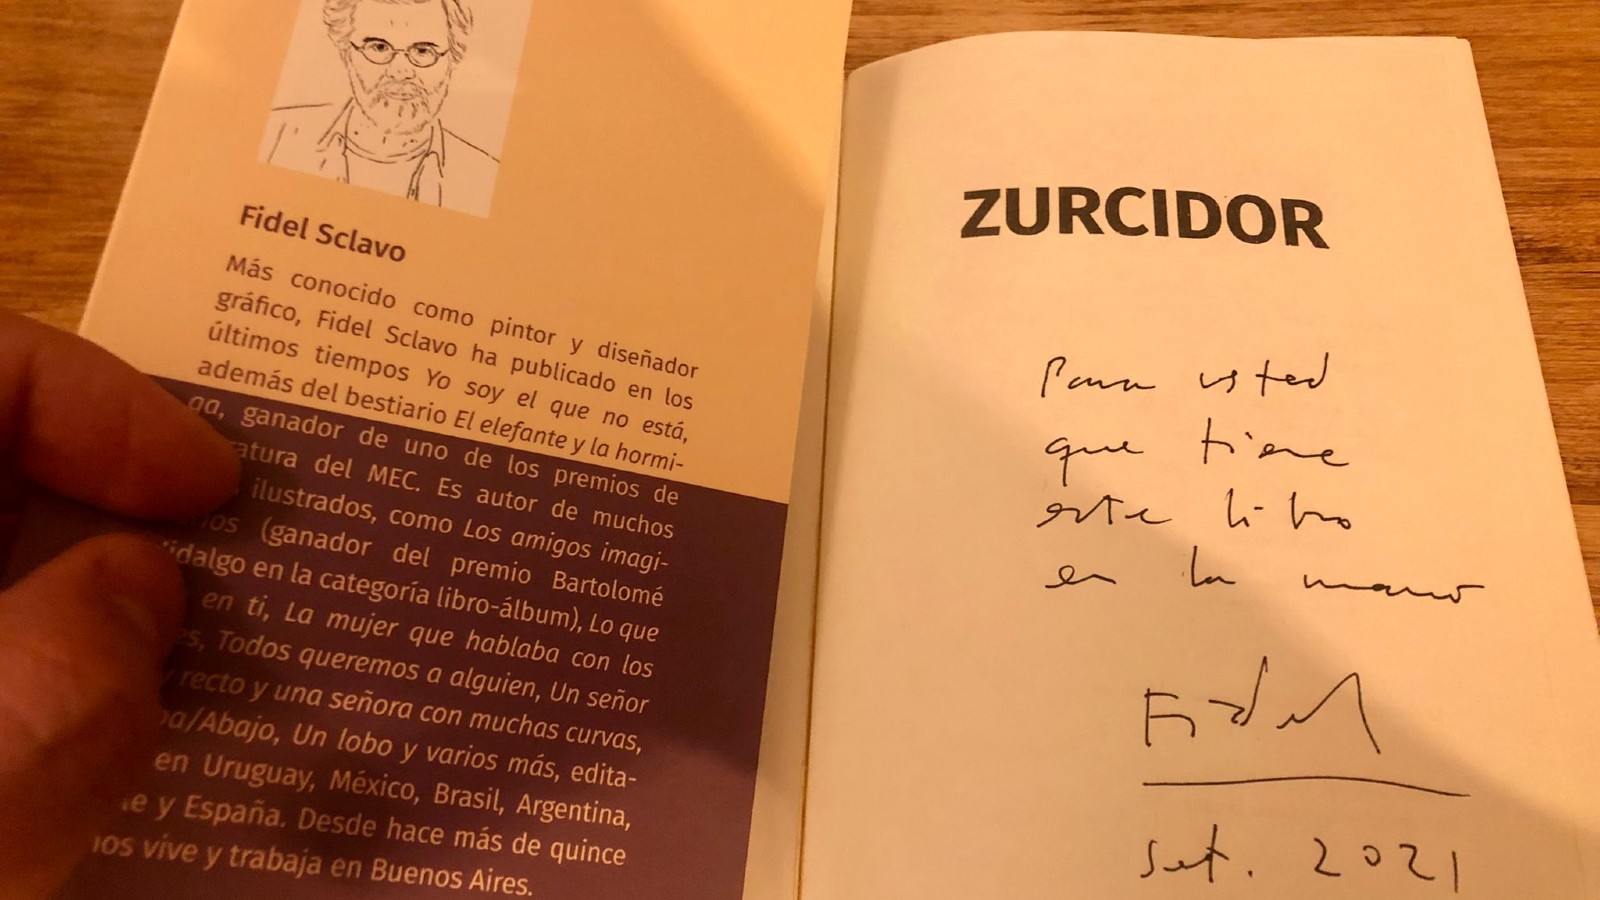 Fidel Sclavo
Más conocido como pintor y diseñador
gráfico, Fidel Sclavo ha publicado en los
últimos tiempos Yo soy el que no está,
además del bestiario El elefante y la hormi-
ga, ganador de uno de los premios de
ratura del MEC. Es autor de muchos
ilustrados, como Los amigos imagi-
nos (ganador del premio Bartolomé
idalgo en la categoría libro-álbum), Lo que
en ti, La mujer que hablaba con los
es, Todos queremos a alguien, Un señor
y recto y una señora con muchas curvas,
ba/Abajo, Un lobo y varios más, edita-
en Uruguay, México, Brasil, Argentina,
le y España. Desde hace más de quince
ños vive y trabaja en Buenos Aires.
ZURCIDOR
Para usted
que tiene
este libro
en la mano
Fidel
set. 2021